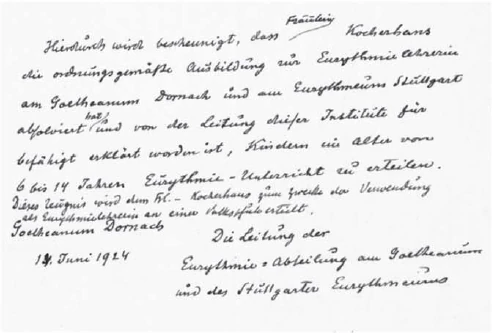 Fräulein
Hierdurch wird bescheinigt, dass Kocherhans
die ordnungsgemäße Ausbildung zur Eurythmielehrerin
am Goetheanum Dornach und am Eurythmeum Stuttgart
hat
absolviert und von der Leitung dieser Institute für
befähigt erklärt worden ist, Kindern im Alter von
6 bis 14 Jahren Eurythmie-Unterricht zu erteilen.
Dieses Zeugnis wird dem Frl. Kocherhans zum Zwecke der Verwendung
als Eurythmielehrerin an einer Volksschule erteilt.
Goetheanum Dornach
Die Leitung der
Juni 1924
Eurythmie=Abteilung am Goetheanum
und des Stuttgarter Eurythmeums